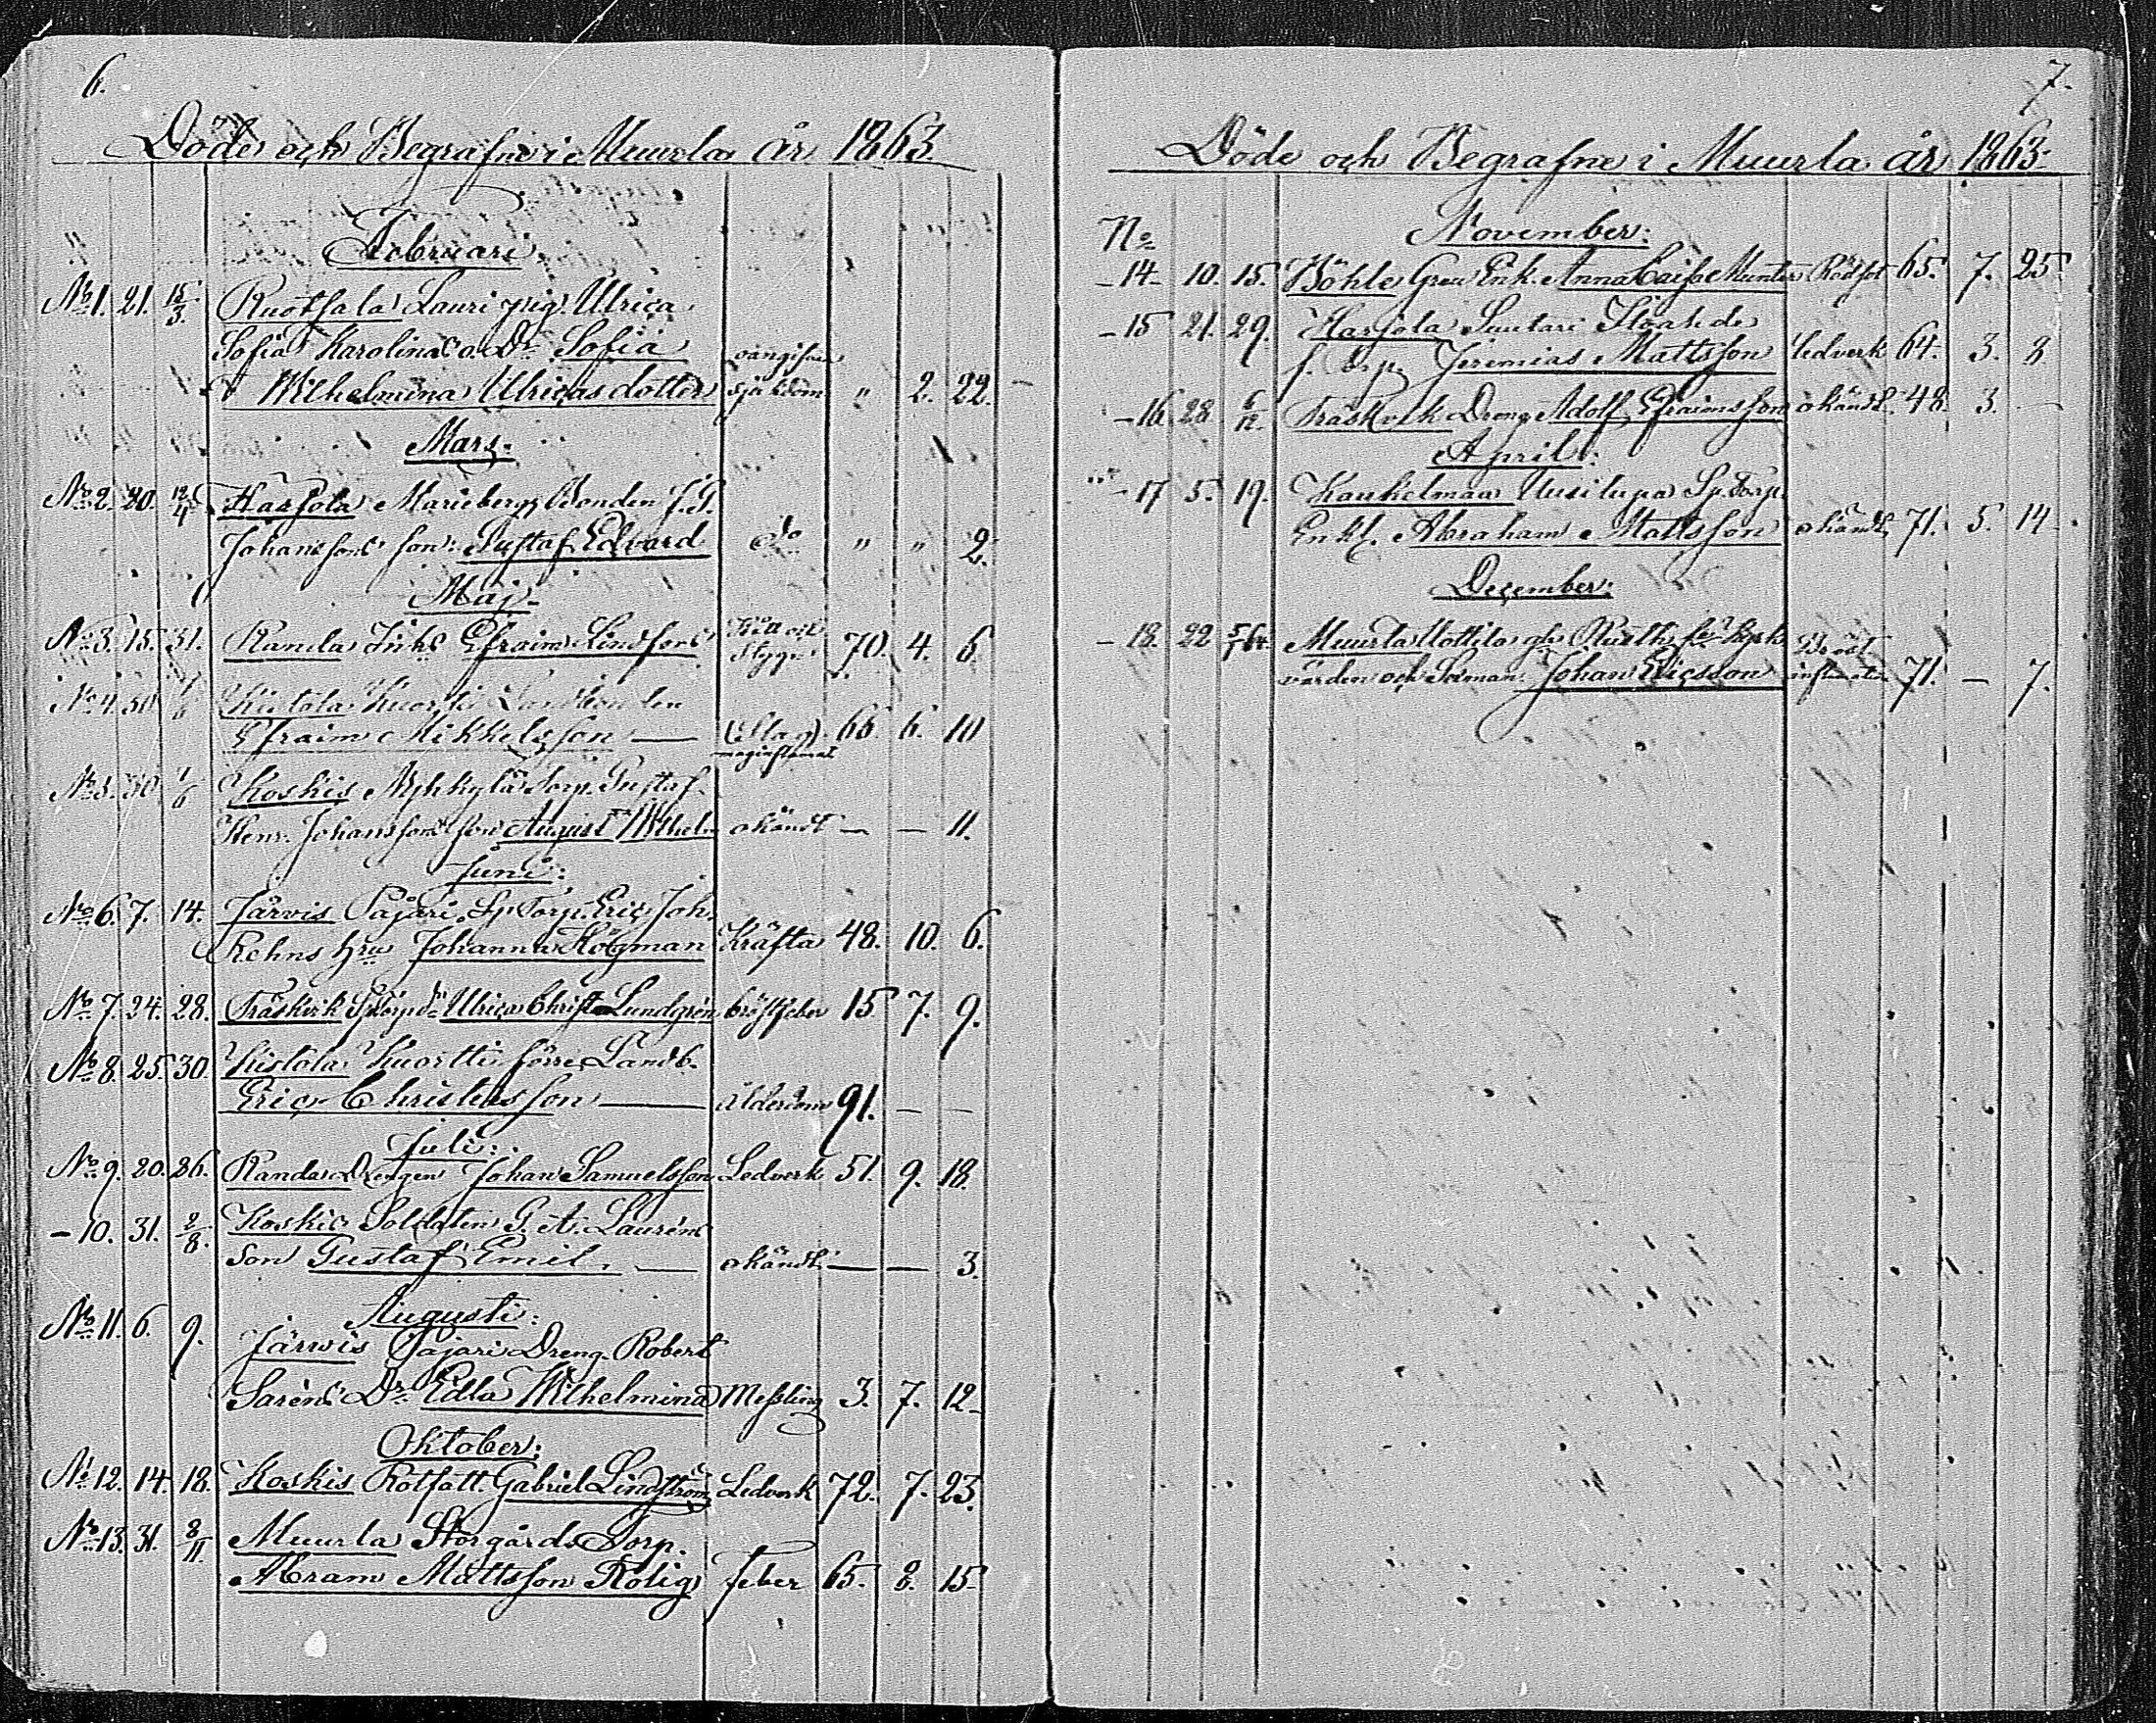 6.
Döde och Begrafne i Muurla år 1863.
Februari.
No 1. 21. 15/3. Ruotsala Lauri pig. Ulrica
Sofia Karolinas o.ä. Dr Sofia
Wilhelmina Ulricasdotter sjukdom " 2. 22.
Mars.
No 2. 20. 12/4 Harjola Marieberg Bonden J. G.
Johanssons son: Gustaf Edvard do " " 2.
Maj.
No 3. 15. 31. Ranela Inhs Efraim 70. 4. 6
No 4. 30. Kistola Kuortti
Efraim Mikkelsson — (Slag) 66 6. 10
No 5. 30. 1/6 Koskis Nyhkylä Torp. Gustaf
Henr. Johanssons son August Wilhelm okändt — — 11.
Juni:
No 6. 7. 14. Järvis Pajari Sp. Torp. Eric Joh.
Rehns hru Johanna Högman Kräfta 48. 10. 6.
No 7. 24. 28. Träskvik Sp torp dr Ulrica Christ. Lundgrén bröstfeber 15 7. 9.
No 8. 25. 30. Kistola Kuortti förre Landb.
Eric Christersson — Ålderdom 91. — —
Juli:
No 9. 20. 26. Randa Drengen Johan Samuelsson Ledverk 51. 9. 18.
- 10. 31. 2/8. Koskis Soldaten G. A. Lauréns
Son Gustaf Emil. — okändt — — 3.
Augusti:
No 11. 6. 9. Järwis Pajari Dreng. Robert
Saréns Dr Edla Wilhelmina Meßling 3. 7. 12
Oktober:
No 12. 14. 18. Koskis Rotfatt. Gabriel Lindström Ledverk 72. 7. 23.
No 13. 31. 8/11. Muurla Storgårds Torp.
Abram Mattsson Rolig feber 65. 8. 15
7.
Döde och Begrafne i Muurla år 1863.
No November:
- 14 - 10. 15. Böhle Gren Enk. Anna Caisa Munter Rödsot 65. 7. 25
- 15 21. 29. Harjola Suutari
f. Torp. Jeremias Mattsson Ledverk 64. 3. 8
- 16 28 6/12. Träskvik Dreng Adolf Efraimsson okändt. 48. 3. —
April:
- 17 5. 19. Kaukelmaa Uusitupa Sp. Torp.
Enkl. Abraham Mattsson okändt. 71. 5. 14
December:
- 18. 22 Muurla Uottila gb Rusth. fd Kyrk
värden och Sexman Johan Ericsson 71. — 7.